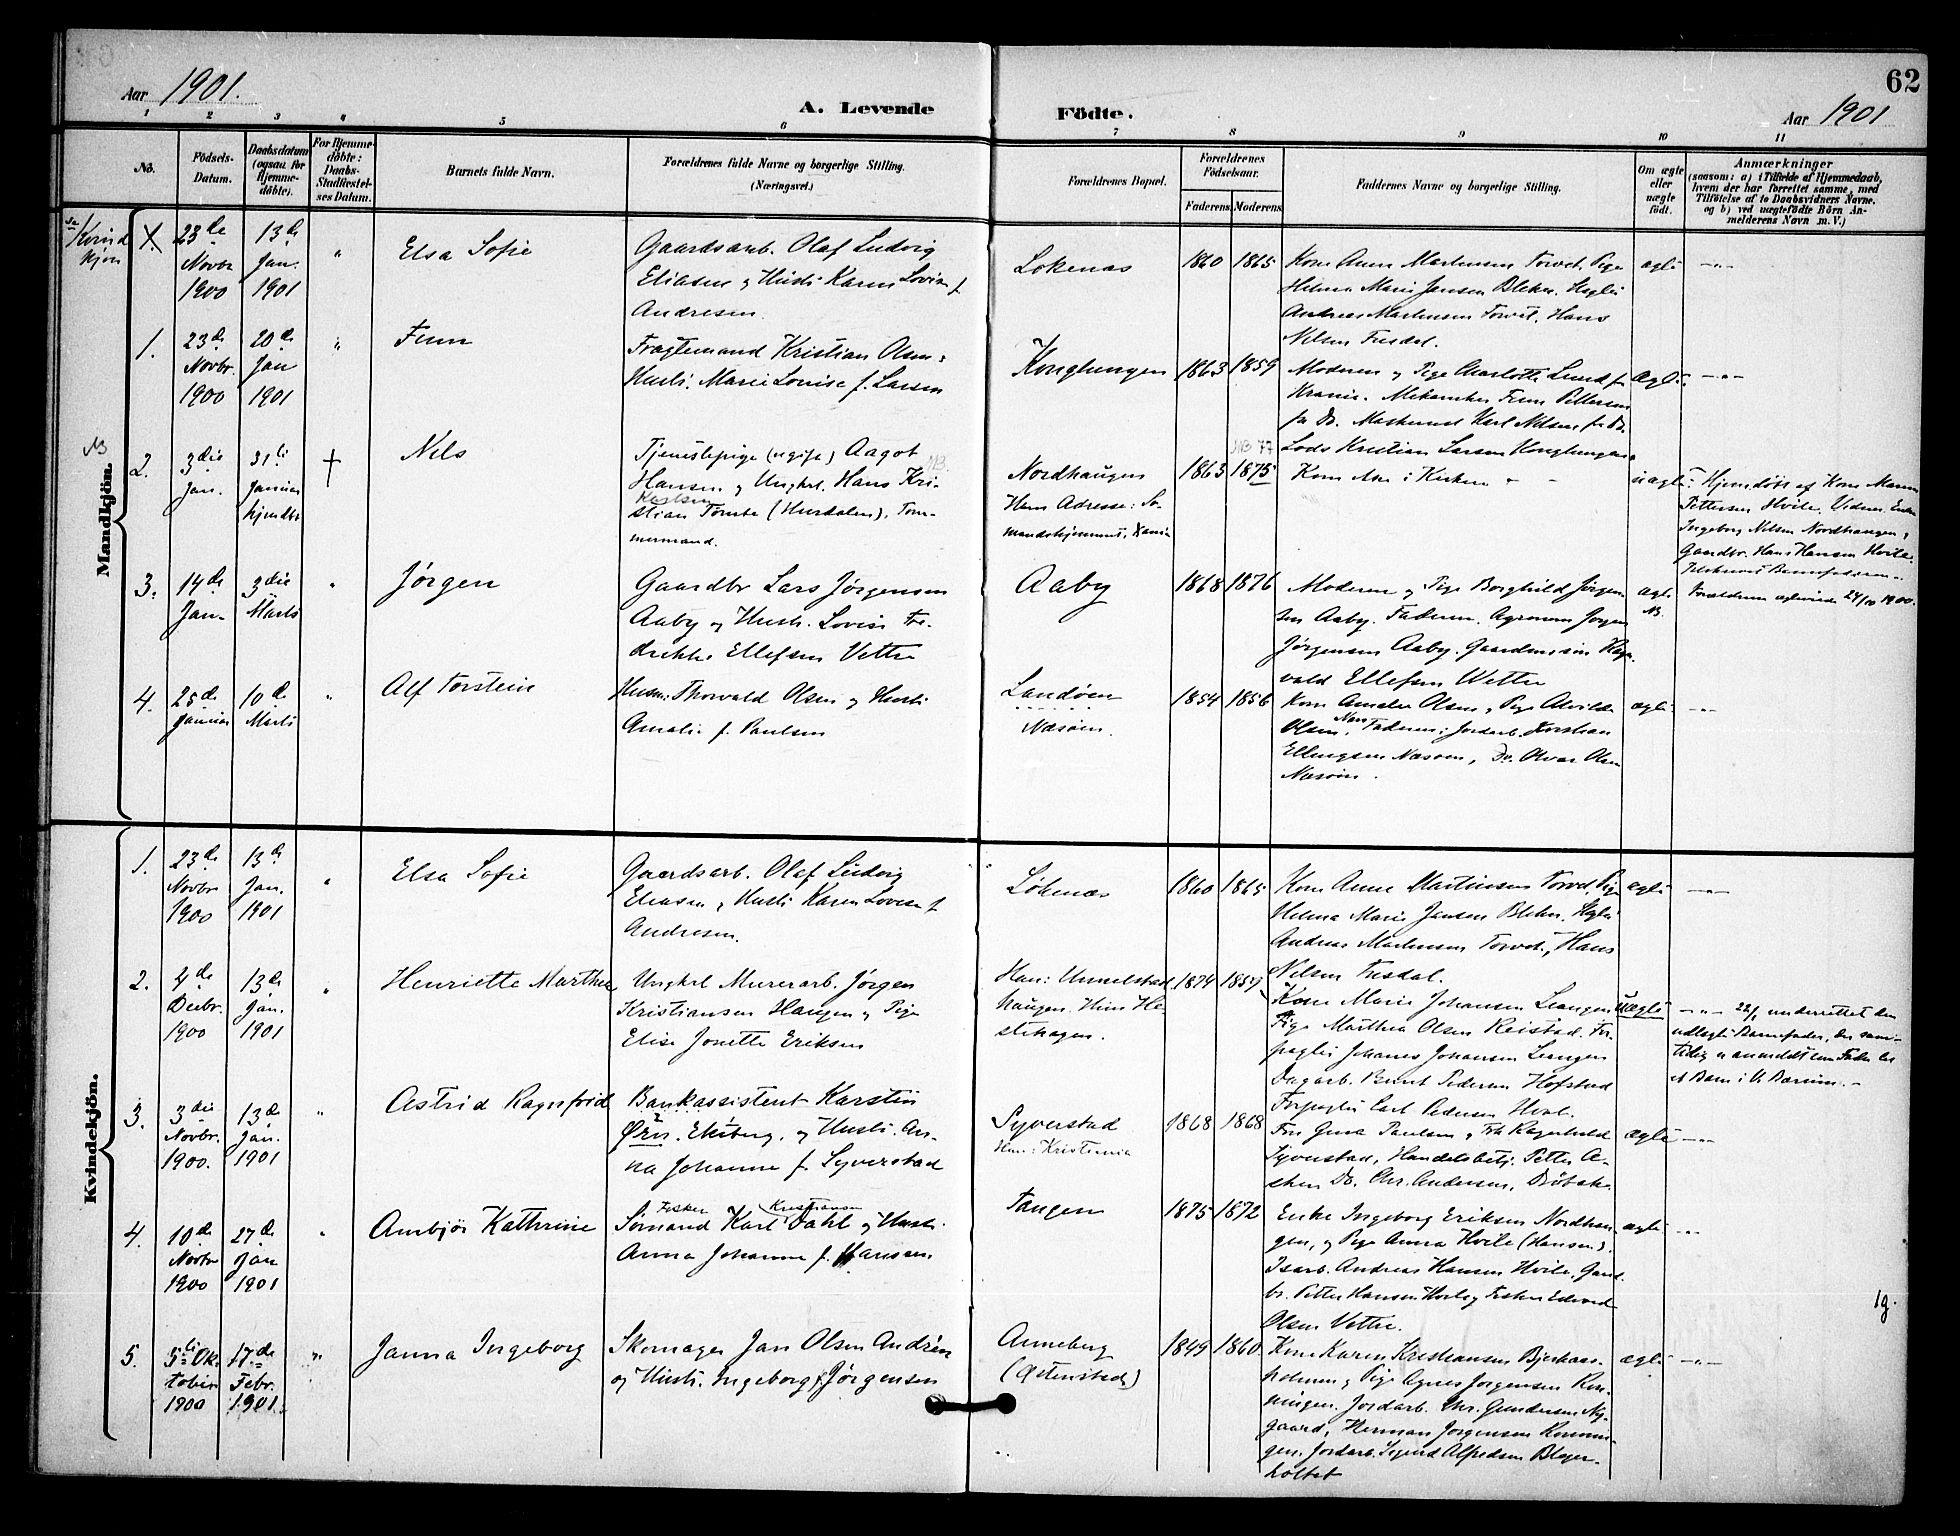 62
Aar 1901.
A. Levende
Födte.
Aar 1901
1 2 3 4 5 6 7 8 9 10 11
No.
Födsels-
Datum.
Daabsdatum
(ogsaa for
Hjemme-
döbte).
For Hjemme-
döbte:
Daabs-
Stadfæstel-
ses Datum.
Barnets fulde Navn.
Forældrenes fulde Navne og borgerlige Stilling.
(Næringsvei.)
Forældrenes Bopæl.
Forældrenes
Födselsaar.
Faderens Moderens
Faddernes Navne og borgerlige Stilling.
Om ægte
eller
uægte
födt.
Anmærkninger
(saasom: a) i Tilfælde af Hjemmedaab,
hvem der har forrettet samme, med
Tilföielse af to Daabsvidners Navne.
og b) ved uægtefödte Börn An-
melderens Navn m. V.)
Mandkjön.
Kvind
kjøn
23de
Novbr
1900
13de
Jan.
1901
Elsa Sofie
Gaardsarb. Olaf Ludvig
Eliasen og Hustr. Karen Lovise f.
Andresen.
Løkenæs
1860 1865
Kone Anne Martinsen Torvet, Pige
Helma Marie Jansen Bleker.
Andreas Martinsen Torvet, Hans
Nilsen Fusdal.
ægte
1.
23de
Novbr.
1900
20de
Jan
1901
Finn
Fragtemand Kristian Olsen
Hustr. Marie Louise f. Larsen
Konglungen
1863 1859
Moderen og Pige Charlotte Lund fr
Krania. Mekaniker Finn Pettersen
fr Do. Maskinist Karl Nilsen fr Do.
Lods Kristian Larsen Konglungen
ægte
2.
3die
Jan.
31te
Januar
hjemdbt
†
Nels
Tjenestepige (ugift) Aagot
Hansen og Ungkrl. Hans Kri-
Karlsen
stian Tømte (Hurdalen), Tøm-
mermand.
Nordhaugen
Hans Adresse: Sø-
mandshjemmet, Xania
1863 1875
Kone
i Kirken
uægte
Hjemdøbt af Kone Maren
Pettersen Hvile. Vidner: Enke
Ingeborg Nilsen Nordhaugen,
Gaardbr. Hans Hansen Hvile.
3.
14de
Jan.
3die
Marts
Jørgen
Gaardbr Lars Jørgensen
Aaby og Hustr. Lovise Fre-
drikke Ellefsen Vettre
Aaby
1868 1876
Moderen og Pige Borghild Jørgen-
sen Aaby. Faderen, Agronom Jørgen
Jørgensen Aaby. Gaardmandssøn Ragn-
vald Ellefsen Wettre
ægte
NB.
Forældrene ægteviede 24/10 1900.
4.
25de
Januar
10de
Marts
Alf Torstein
Husm: Thorvald Olsen og Hustr.
Amalie f. Paulsen
Landøen
Næsøen.
1854 1856
Kone Amalie Olsen, Pige Alvilde
Olsen, Faderen, Jordarb. Kristian
Ellingsen Næsøen, Do. Olvar Olsen
Næsøen.
ægte
Kvindekjön.
1.
23de
Novbr
1900
13de
Jan.
1901
Elsa Sofie
Gaardsarb. Olaf Ludvig
Eliasen og Hustr. Karen Lovise f.
Andresen.
Løkenæs
1860 1865
Kone Anne Martinsen Torvet, Pige
Helma Marie Jansen Bleker.
Andreas Martinsen Torvet, Hans
Nilsen Fusdal.
ægte
2.
4de
Decbr.
1900
13de
Jan.
1901
Henriette Marthea
Ungkrl Murerarb. Jørgen
Kristiansen Haugen og Pige
Elise Jonette Eriksen
Han: Unnelstad
haugen. Hun: He-
stehagen.
1874 1857
Kone Marie Johansen Leangen
Pige Marthea Olsen Reistad. For-
pagter Johanes Johansen Leangen
Dagarb. Bernt Pedersen Hofstad
Forpagter Carl Pedersen Hval.
uægte
22/1 underrettet den
udlagte Barnefader, der sam-
tidig er anmeldt som Fader til
et Barn i V. Bærum.
3.
3die
Novbr.
1900.
13de
Jan.
1901
Astrid Ragnfrid
Bankassistent Karsten
Ørn. Ekeberg, og Hustr. An-
na Johanne f. Syverstad
Syverstad
Han: Kristiania
1868 1868
Fru Gina Paulsen og Frk Ragnhild
Syverstad, Handelsbetj. Petter A-
sken Do. Chr. Andersen, Drøbak.
ægte
4.
10de
Novbr
1900
27de
Jan
1901
Ambjør Kathrine
Fisker Kristiansen
Sømand Karl Dahl og Hustr.
Anna Johanne f. Hansen.
Tangen
1875 1872
Enke Ingeborg Eriksen Nordhau-
gen, og Pige Anna Hvile (Hansen).
Isarb. Andreas Hansen Hvile, Gaard-
br. Petter Hansen Hval og Fisker Edvard
Olsen Vettre.
ægte
19.
5.
5te Ok-
tober
1900
17de
Febr.
1901.
Janna Ingeborg
Skomager Jan Olsen Andrén
og Hustr. Ingeborg f. Jørgensen
Anneberg
(Østenstad)
1849 1860
Kone Karen Kristiansen Bjerkaas-
holmen og Pige Agnes Jørgensen Røn-
ningen. Jordarb. Chr. Gundersen Ny-
gaard, Herman Jørgensen Rønnin-
gen. Jordarb. Sigurd Alfredsen Bleger-
holtet
ægte